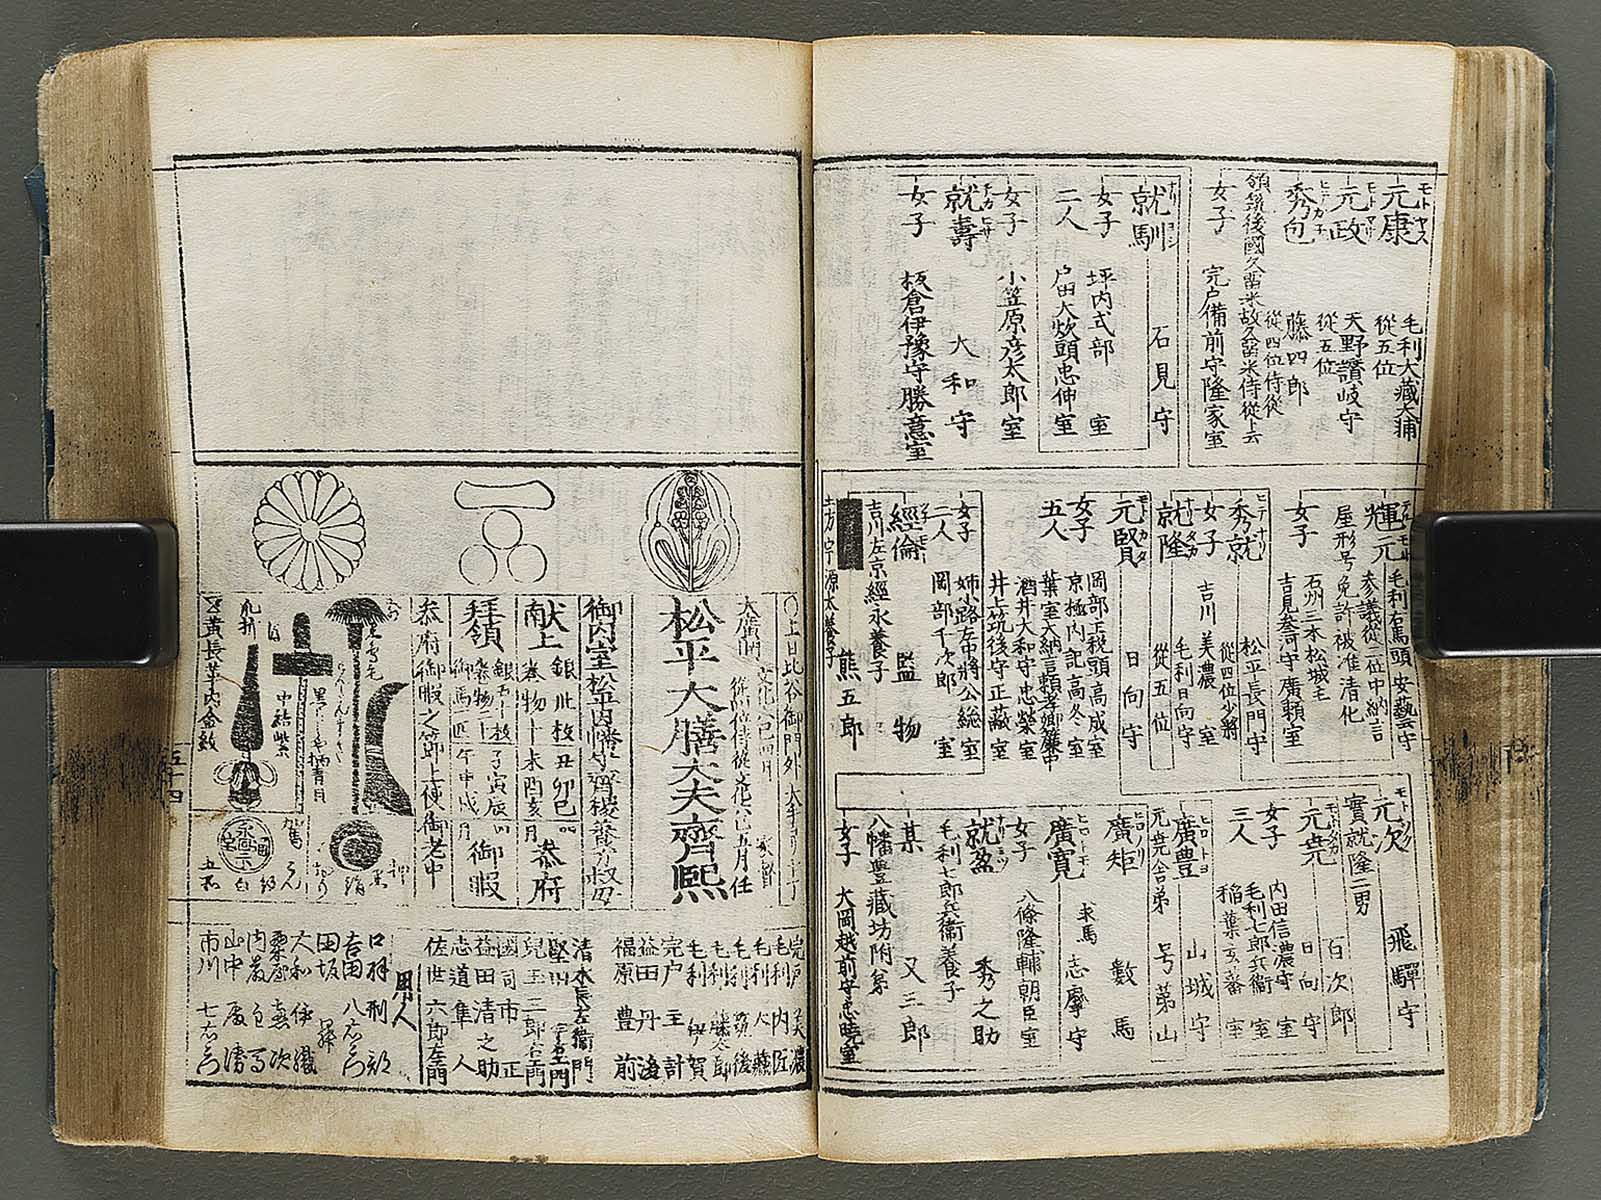 元康 毛利大藏大輔
從五位
元政 天野讃岐守
從五位
秀包 藤四郎
從四位侍從
領筑後國久留米故久留米侍從ト云
女子 宍戸備前守隆家室
就馴 石見守
女子 坪内式部 室
二人 戸田大炊頭忠仲室
女子 小笠原彦太郎室
就壽 大和守
女子 板倉伊豫守勝意室
輝元 毛利右馬頭 安藝守
参議從三位中納言
屋形号免許被准清花
女子 石州三本松城主
吉見参河守廣頼室
秀就 松平長門守
從四位少將
女子 吉川美濃 室
就隆 毛利日向守
從五位
元賢 日向守
女子 岡部主税頭高成室
五人 京極内記高冬室
葉室大納言頼孝卿簾中
酒井大和守忠榮室
井上筑後守正蔽室
女子 姉小路左中將公総室
二人 岡部千次郎 室
經倫 監物
吉川左京經永養子
熊五郎
土方宇源太養子
元次 飛驒守
實就隆二男
百次郎
元堯 日向守
女子 内田信濃守 室
三人 毛利七郎兵衞室
稲葉玄蕃 室
廣豊 山城守
元堯舎弟 号苐山
廣矩 數馬
廣寛 求馬 志摩守
女子 八條隆輔朝臣室
就盈 秀之助
毛利七郎兵衞養子
某 又三郎
八幡豊藏坊附弟
女子 大岡越前守忠曉室
上日比谷御門外
大廣間
松平大膳大夫齊熙
御内室松平因幡守齊稷養方叔母
献上 銀卅枚 丑卯巳
巻物十 未酉亥 月 参府
拝領 銀五十枚 子寅辰
巻物二十
御馬一疋 午申戌 月 御暇
参府御暇之節上使御老中
毛利内匠
毛利筑後
毛利伊賀
宍戸主計
益田丹後
福原豊前
清水長左衞門
堅田宇右エ門
兒玉三郎右エ門
國司市正
益田清之助
志道隼人
佐世六郎左エ門
用人
口羽刑部
吉田八右衞門
田坂
大和伊織
粟屋
内藤
山中
市川七右衞門
五十四